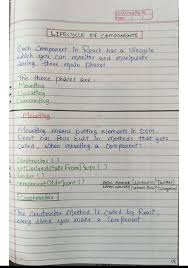 LIFECYCLE OF COMPONENTS
Each Component in React has a lifecycle
which you can monitor and manipulate
during three main phases.
The three phases are :
Mounting
Updating
Unmounting
Mounting
Mounting means putting elements in DOM.
React has four built in methods that gets
called, when mounting a component :
Constructor()
getDerivedStateFromProps()
render()
componentDidMount()
Constructor
The Constructor Method is called by React,
every time you make a component.